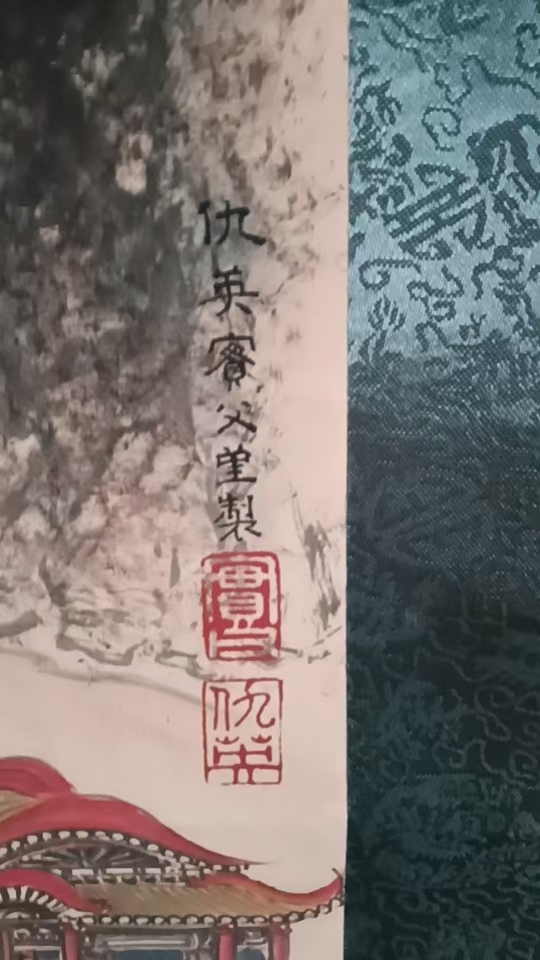 仇英實父堇製
實父
仇英